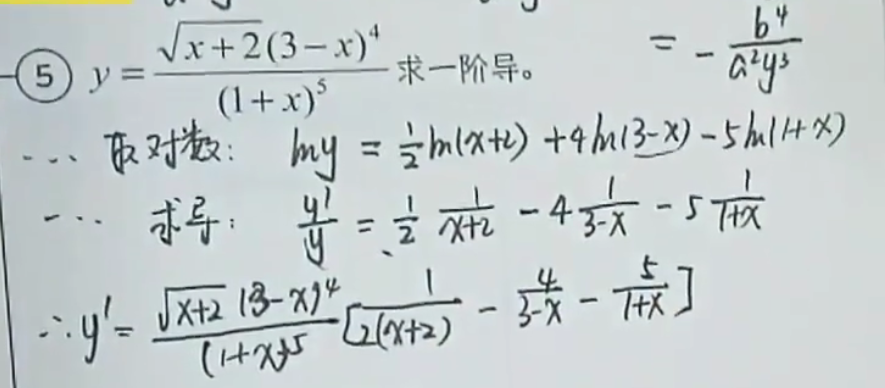 ⑤ y = \frac{\sqrt{x+2}(3-x)^4}{(1+x)^5} 求一阶导。 = -\frac{b^4}{a^2y^3}
... 取对数: lny = \frac{1}{2}ln(x+2) + 4ln(3-x) - 5ln(1+x)
... 求导: \frac{y'}{y} = \frac{1}{2} \frac{1}{x+2} - 4\frac{1}{3-x} - 5\frac{1}{1+x}
∴ y' = \frac{\sqrt{x+2}(3-x)^4}{(1+x)^5} [\frac{1}{2(x+2)} - \frac{4}{3-x} - \frac{5}{1+x}]